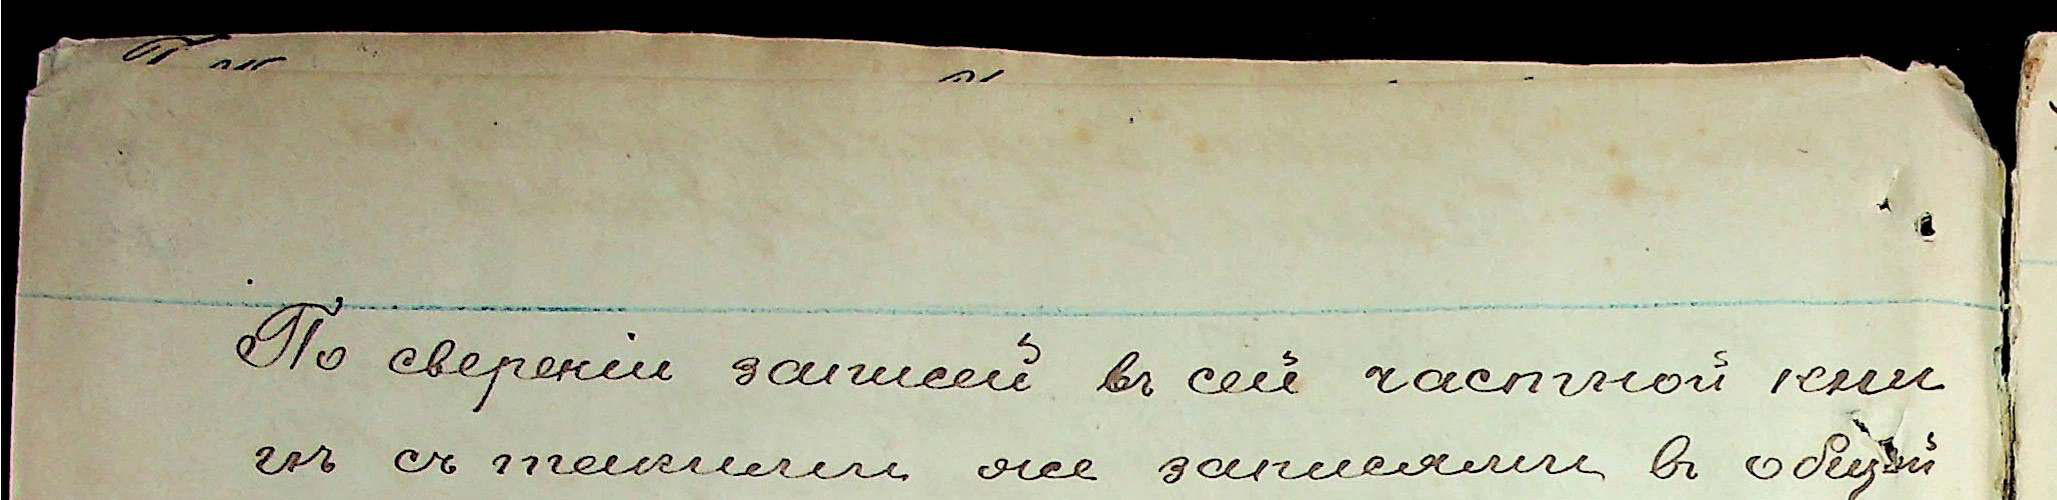 По сверенiи записей въ сей частной кни
гѣ съ такими же записями въ общей